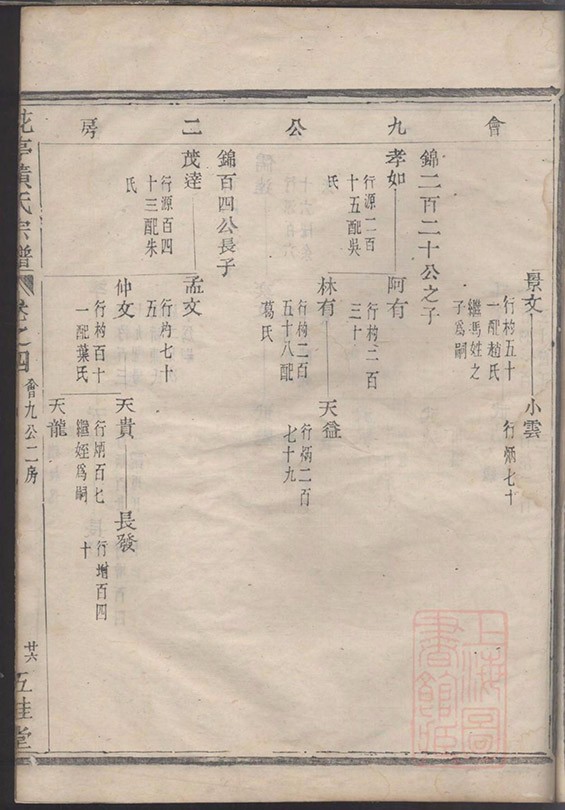 會九公二房
景文
行杓五十
一配趙氏
繼馮姓之
子爲嗣
小雲
行炳七十
錦二百二十公之子
孝如
行源二百
十五配吳
氏
阿有
行杓三百
三十
林有
行杓二百
五十八配
葛氏
天益
行炳二百
七十九
錦百四公長子
茂達
行源百四
十三配朱
氏
孟文
行杓七十
五
仲文
行杓百十
一配葉氏
天貴
行炳百七
繼姪爲嗣
長發
行增百四
十
天龍
花亭黃氏宗譜
卷之四
會九公二房
廿六
五桂堂
上海圖書館藏